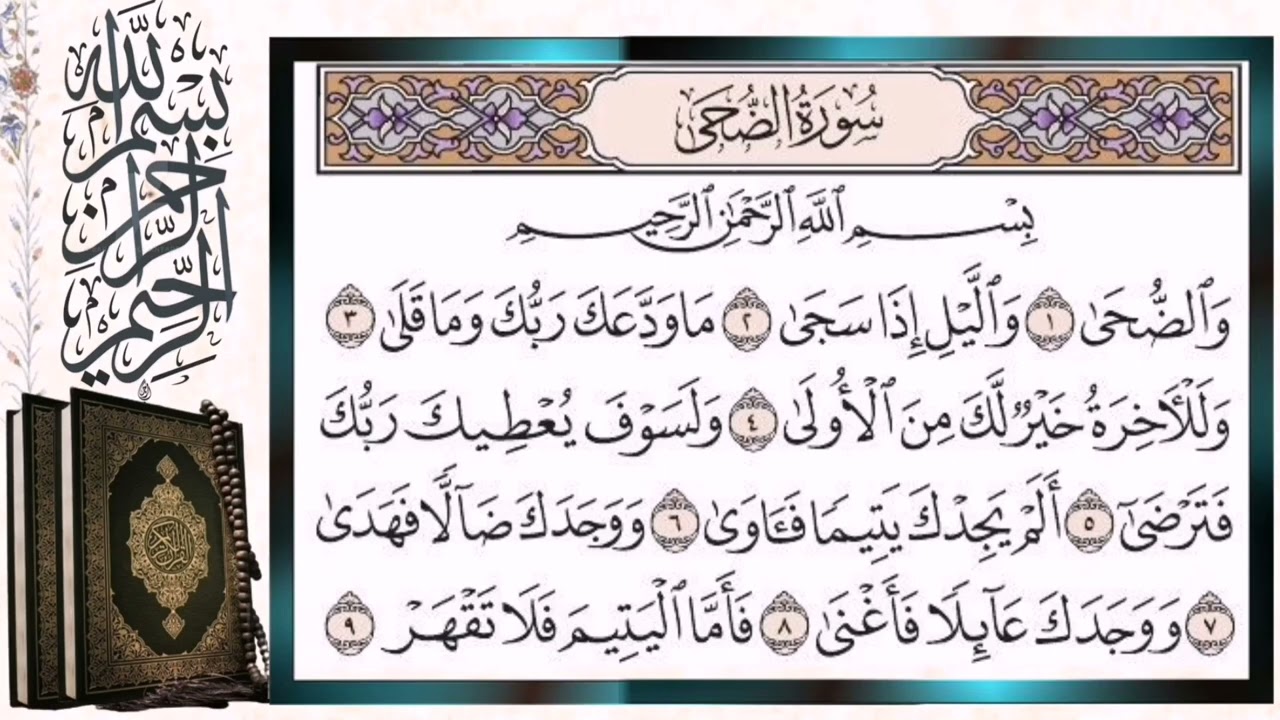 بسم الله الرحمن الرحيم
سُورَةُ الضُّحَىٰ
بِسْمِ ٱللَّهِ ٱلرَّحْمَٰنِ ٱلرَّحِيمِ
وَٱلضُّحَىٰ ١ وَٱلَّيْلِ إِذَا سَجَىٰ ٢ مَا وَدَّعَكَ رَبُّكَ وَمَا قَلَىٰ ٣
وَلَلْأٓخِرَةُ خَيْرٌ لَّكَ مِنَ ٱلْأُولَىٰ ٤ وَلَسَوْفَ يُعْطِيكَ رَبُّكَ
فَتَرْضَىٰٓ ٥ أَلَمْ يَجِدْكَ يَتِيمًا فَـَٔاوَىٰ ٦ وَوَجَدَكَ ضَآلًّا فَهَدَىٰ
٧ وَوَجَدَكَ عَآئِلًا فَأَغْنَىٰ ٨ فَأَمَّا ٱلْيَتِيمَ فَلَا تَقْهَرْ ٩
القرآن الكريم